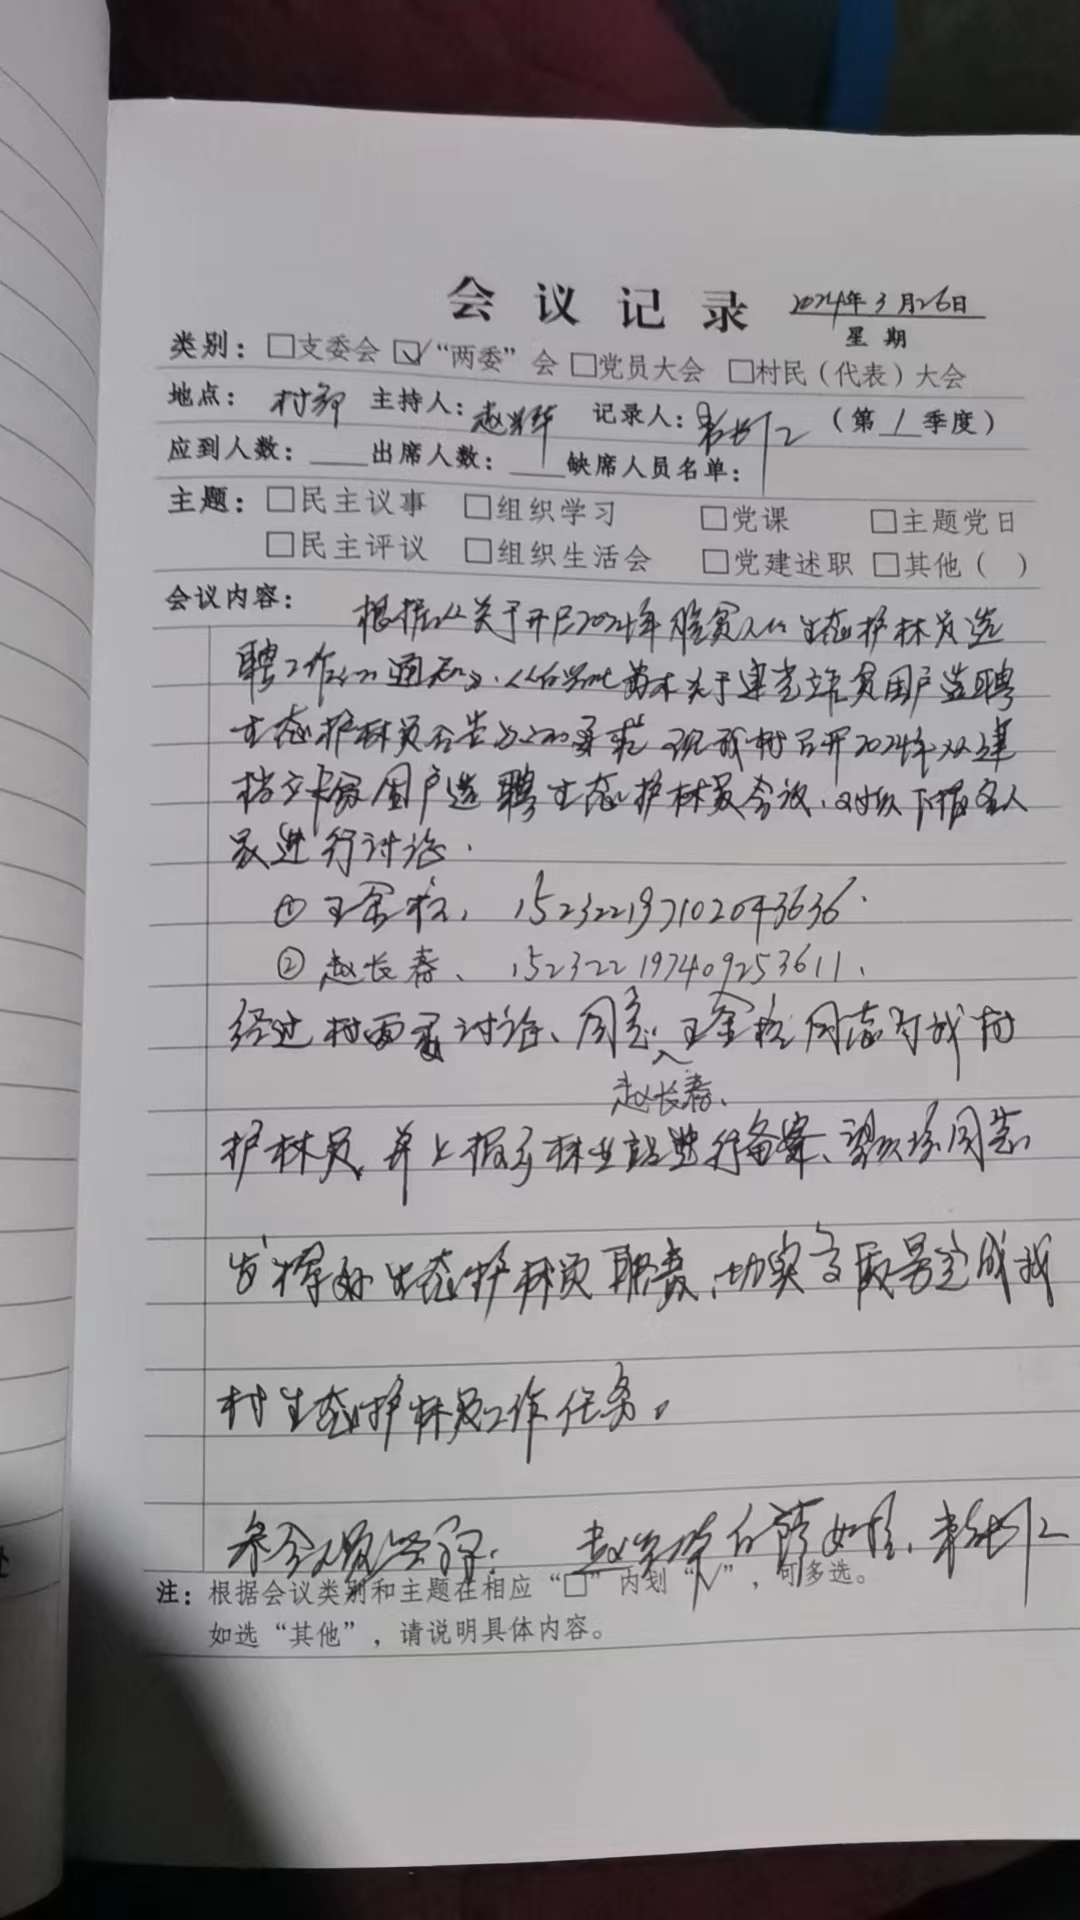 会议记录 2024年3月26日
星期
类别：□支委会 ☑“两委”会 □党员大会 □村民（代表）大会
地点：村部 主持人：赵兴华 记录人： （第1季度）
应到人数：___ 出席人数：___ 缺席人员名单：
主题：□民主议事 □组织学习 □党课 □主题党日
□民主评议 □组织生活会 □党建述职 □其他（ ）
会议内容： 根据《关于开展2024年脱贫人口生态护林员选
聘工作的通知》、《 关于建档立 贫困户选聘
生态护林员公告》的要求 现我村召开2024年 建
档立卡贫困户选聘生态护林员会议，对以下报名人
员进行讨论.
① 王金 ， 152322197102043636.
② 赵长春、 152322197409253611.
经过村两委讨论、同意、王金 同志为我村
赵长春、
护林员，并上报 林业站进行备案、望 同志
发挥好生态护林员职责，切实 完成我
村生态护林员工作任务。
参会人员签字：
注：根据会议类别和主题在相应“□”内划“√”，可多选。
如选“其他”，请说明具体内容。